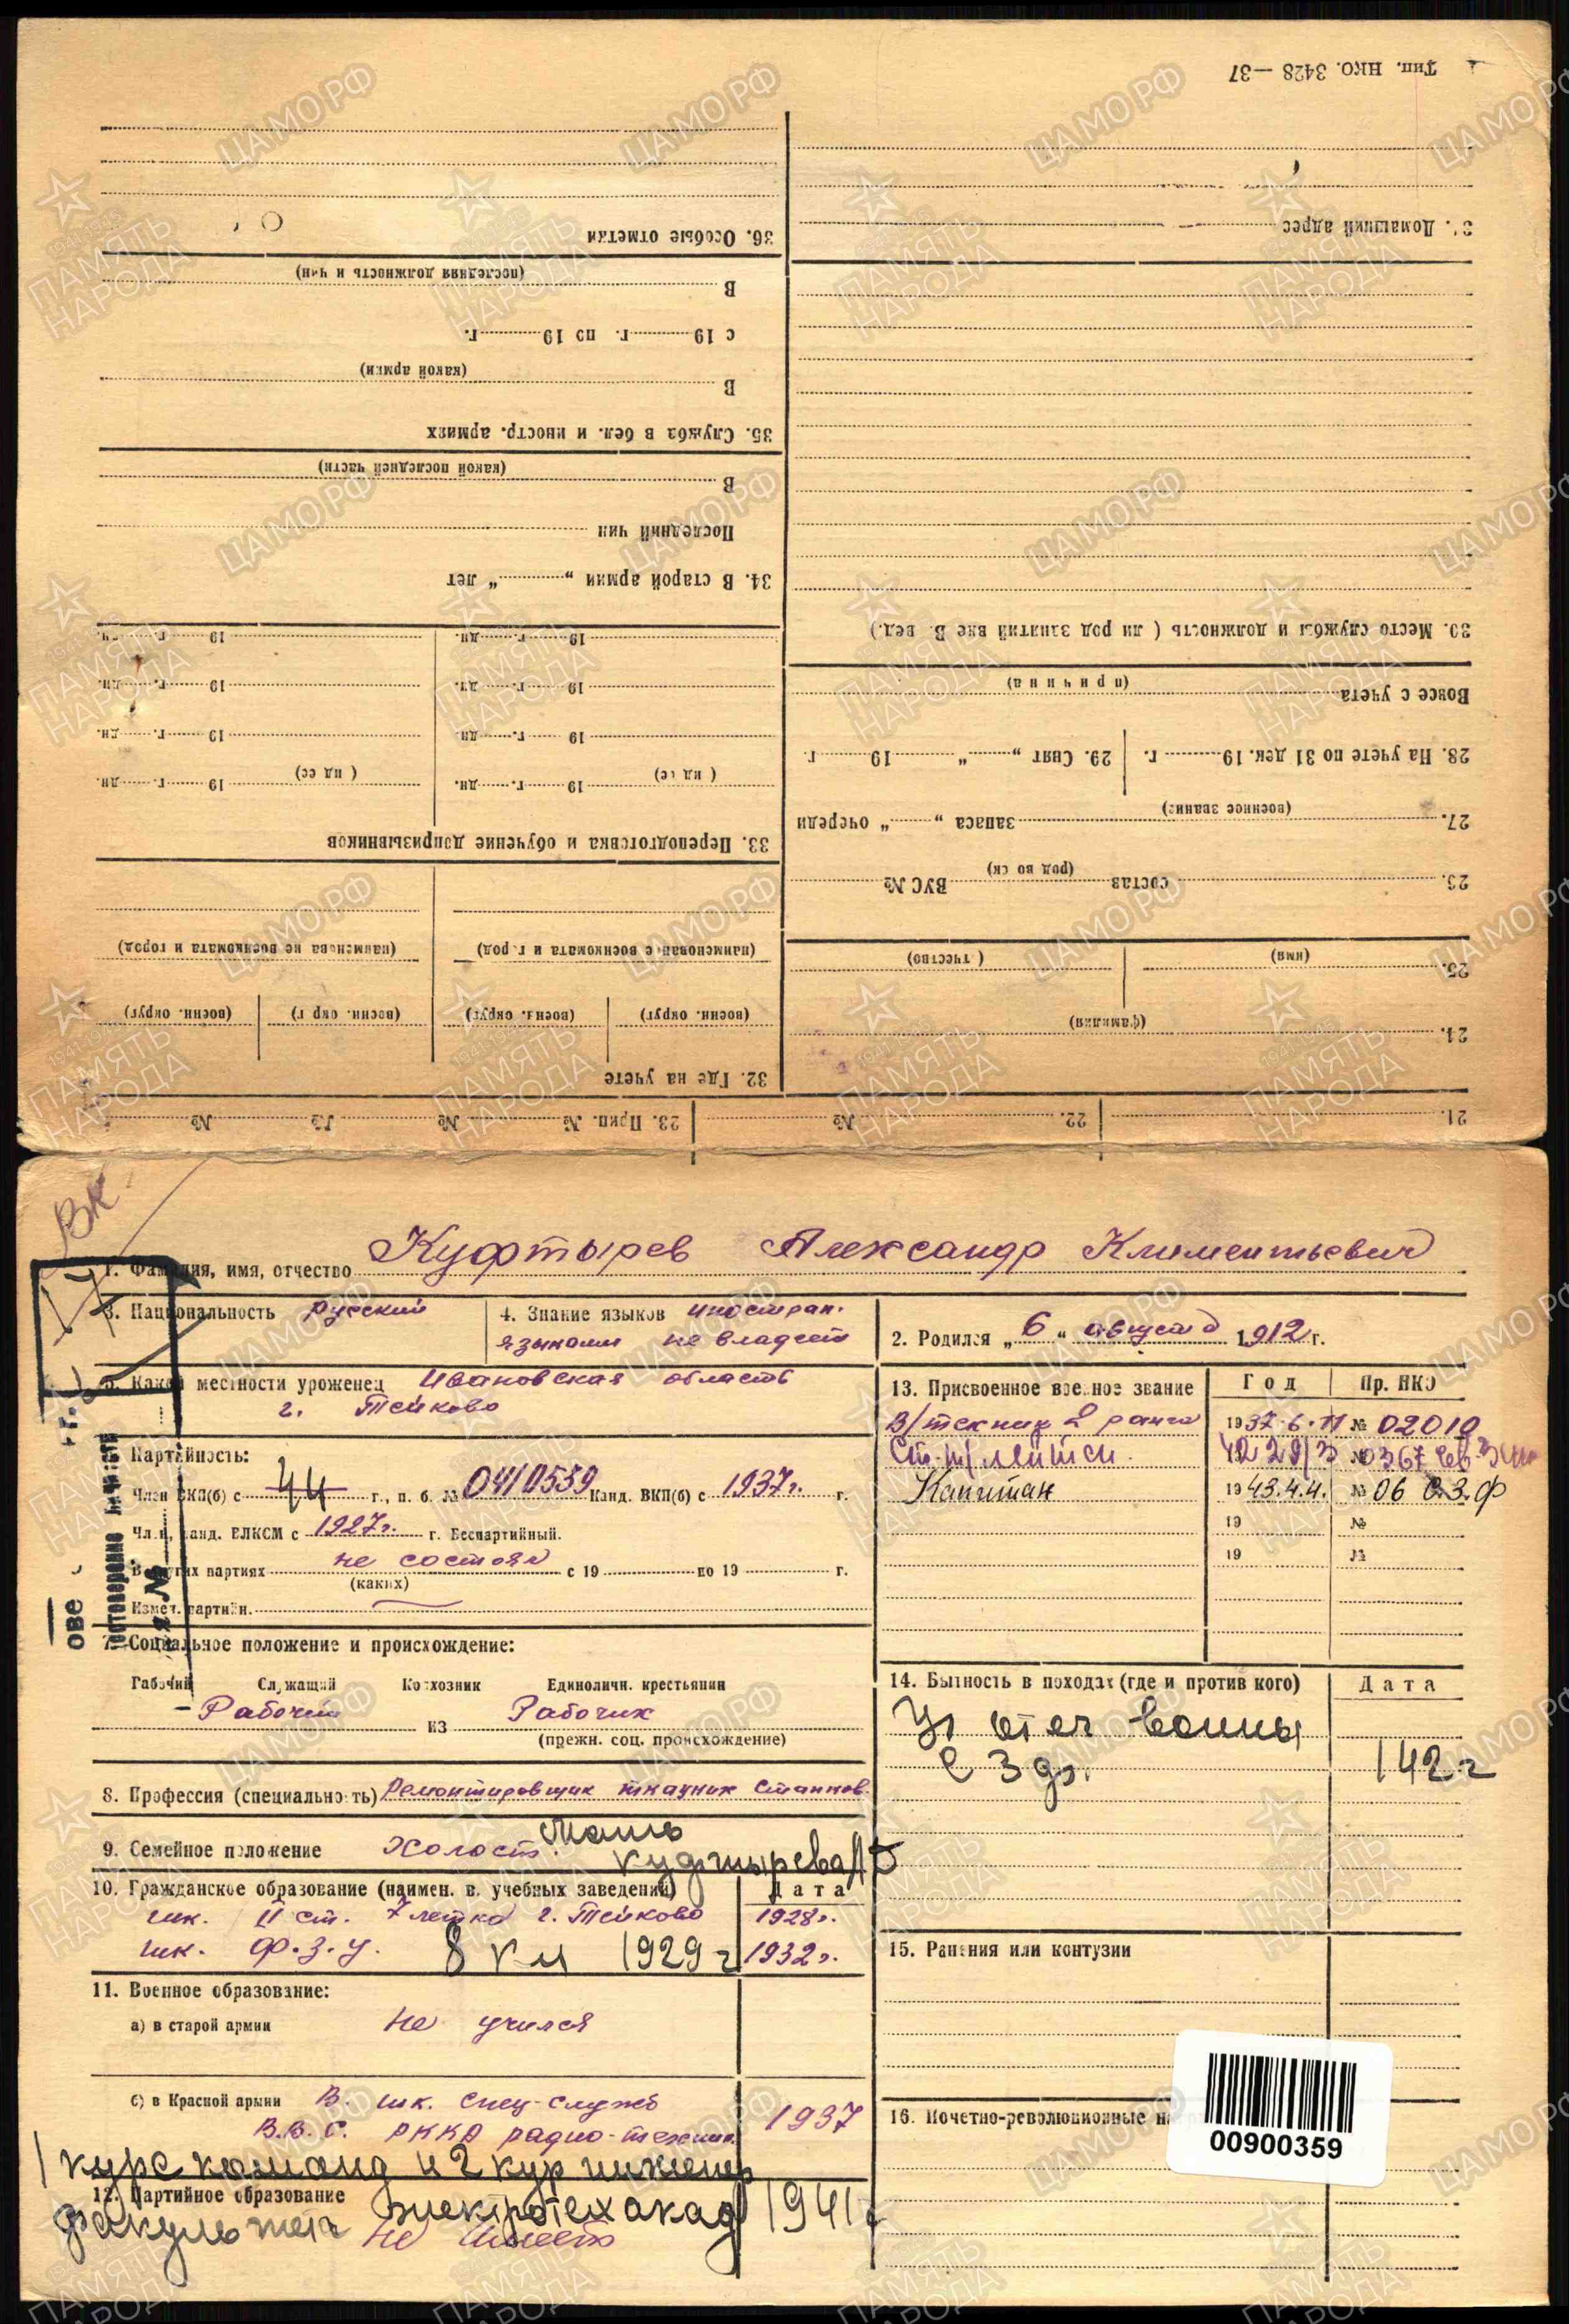 Тип. НКО. 3428 — 37
36. Особые отметки
(последняя должность и чин)
В
с 19 г. по 19 г.
(какой армии)
В
35. Служба в бел. и иностр. армиях
(какой последней части)
В
Последний чин
34. В старой армии „ “ лет
19 г. дн. 19 г. дн.
19 г. дн. 19 г. дн.
19 г. дн. 19 г. дн.
19 г. дн. 19 г. дн.
33. Переподготовка и обучение допризывников
(наименование военкомата и город) (наименование военкомата и город)
(военн. округ) (военн. округ) (военн. округ) (военн. округ)
32. Где на учете
Домашний адрес
30. Место службы и должность ( ли род занятий вне В. вед.)
(причина)
Вовсе с учета
28. На учете по 31 дек. 19 г. 29. Снят „ “ 19 г.
27. (военное звание) запаса „ “ очереди
состав (род войск) ВУС №
25. (имя) (отчество)
24. (фамилия)
21. 22. № 23. Прип. № № № №
ВК
1. Фамилия, имя, отчество Куфтырев Александр Климентьевич
3. Национальность русский
4. Знание языков иностран. языками не владеет
2. Родился „6“ августа 1912 г.
5. Какой местности уроженец Ивановская область
г. Тейково
Партийность:
Член ВКП(б) с 44 г., п. б. № 0410559 Канд. ВКП(б) с 1937 г. г.
Член, канд. ВЛКСМ с 1927 г. г. Беспартийный.
В других партиях не состоял с 19 по 19 г.
(каких)
Измен. партийн.
7. Социальное положение и происхождение:
Рабочий Служащий Колхозник Единоличн. крестьянин
– Рабочий из Рабочих
(прежн. соц. происхождение)
8. Профессия (специальность) Ремонтировщик ткацких станков
9. Семейное положение Холост. Мать
Куфтырева
10. Гражданское образование (наимен. в. учебных заведений) Дата
шк. II ст. 7 летка г. Тейково 1928 г.
шк. Ф.З.У. 8 кл 1929 г 1932 г.
11. Военное образование:
а) в старой армии Не учился
б) в Красной армии В. шк. Спец-служб
В.В.С. РККА радио-техник. 1937
1 курс команд и 2 кур инженер
12. Партийное образование
факультета электротех акад 1941 г
не имеет
13. Присвоенное военное звание Год Пр. НКО
В/техник 2 ранга 1937.6.11 № 02010
Ст. т/лейтен. 42 29/3 № 0367
Капитан 1943.4.4. № 06 С.З.Ф
19 №
19 №
14. Бытность в походах (где и против кого) Дата
Уч отеч войны
С З фр. 142 г
15. Ранения или контузии
16. Почетно-революционные на
00900359
ЦАМО РФ
1941-1945
ПАМЯТЬ
НАРОДА